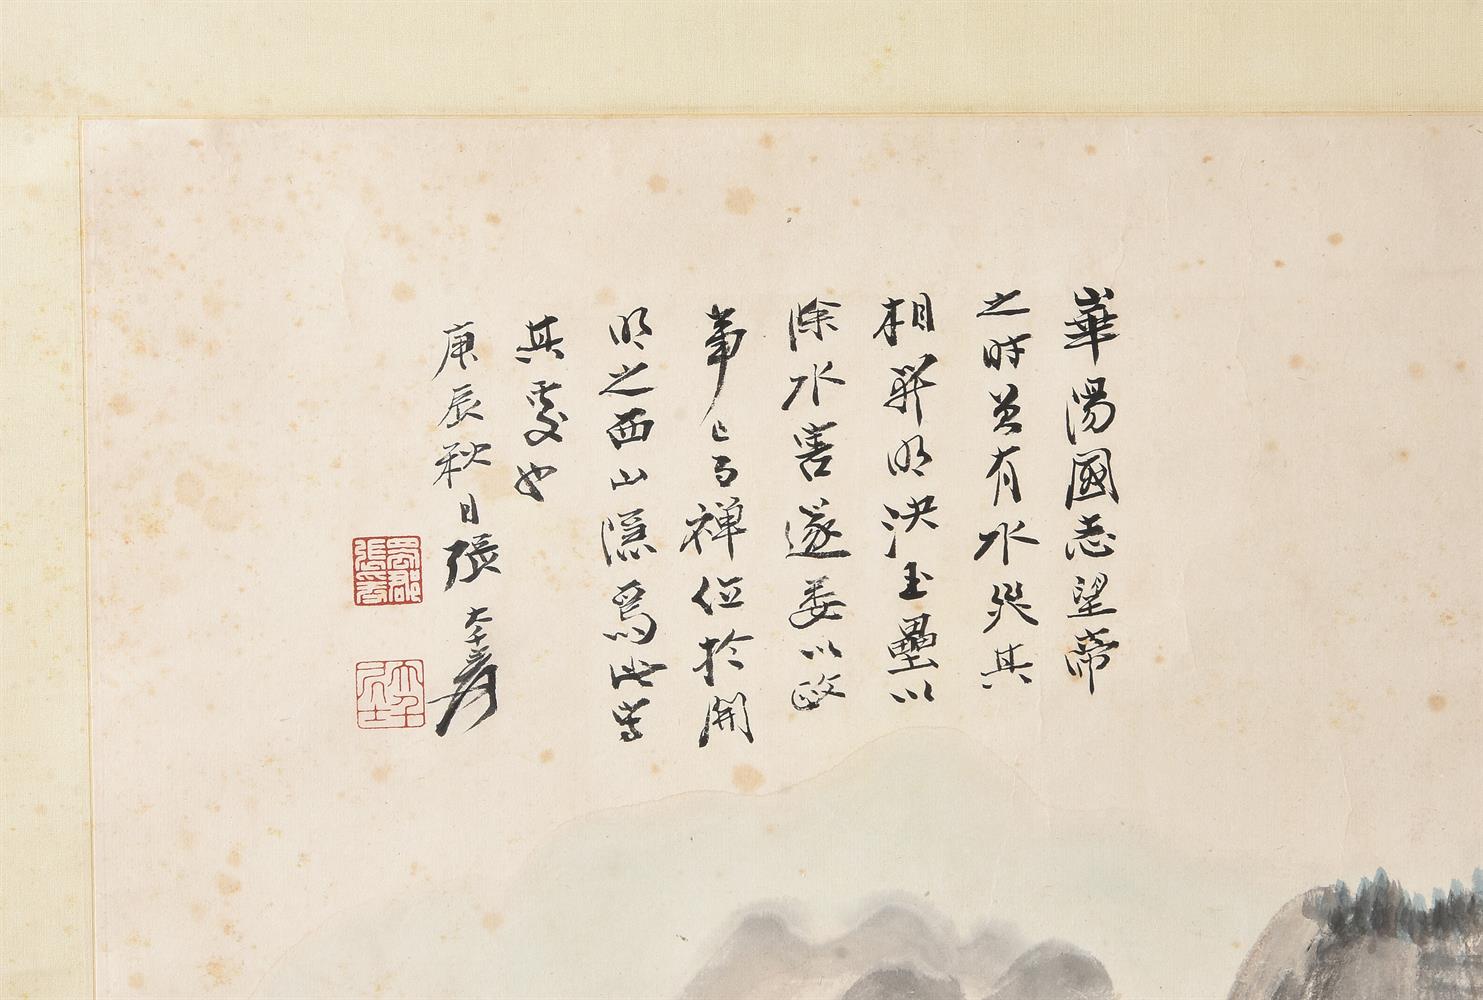 華陽國志望帝
之時曾有水災其
相開明決玉壘以
除水害遂委以政
事已而禪位於開
明之西山隱焉此寫
其處也
庚辰秋日張大千爰
蜀郡張爰
大千居士